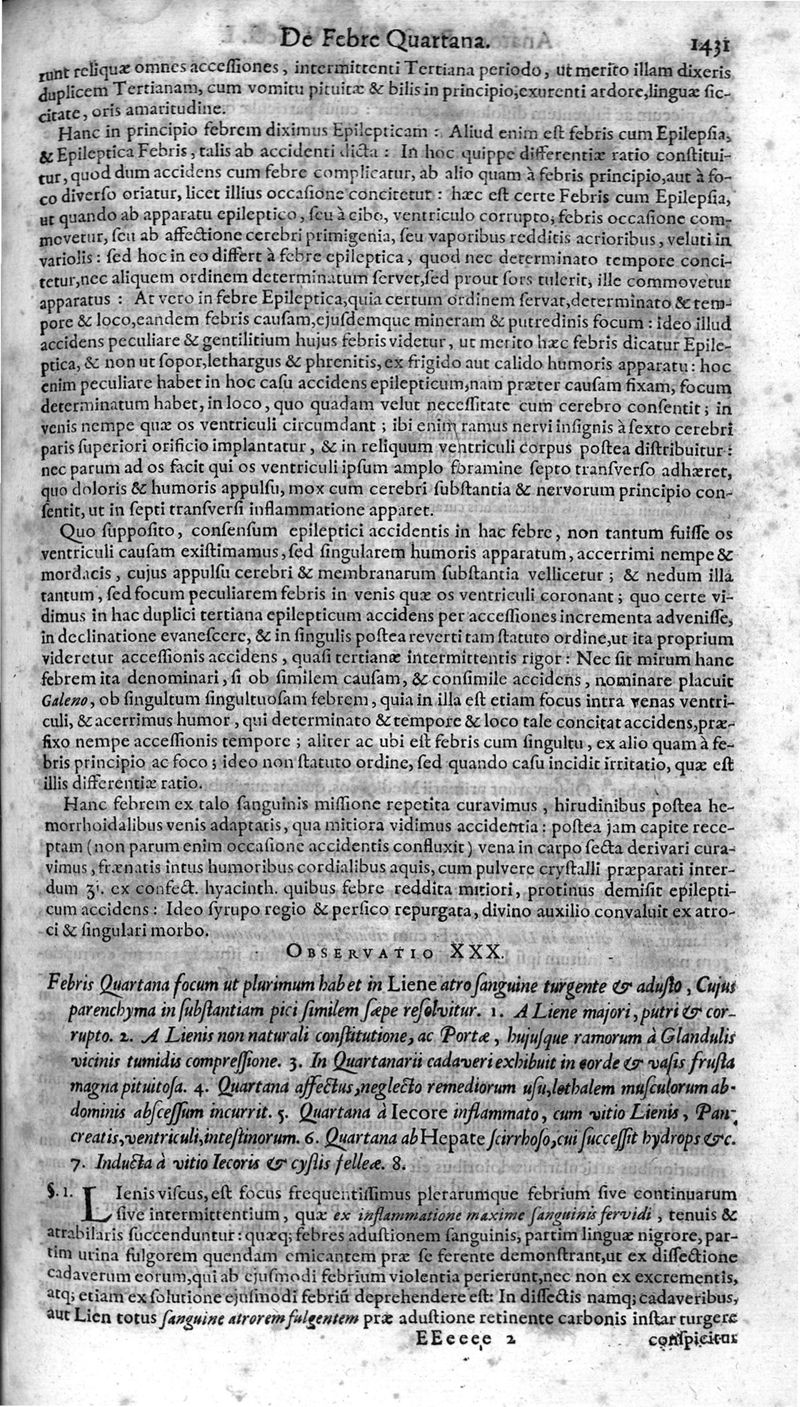 De Febre Quartana. 1431
runt reliquæ omnes accessiones, intermittenti Tertiana periodo, ut merito illam dixeris
duplicem Tertianam, cum vomitu pituitæ & bilis in principio, exurenti ardore, linguæ sic-
citate, oris amaritudine.
Hanc in principio febrem diximus Epilepticam : Aliud enim est febris cum Epilepsia,
& Epileptica Febris, talis ab accidenti dicta : In hoc quippe differentiæ ratio constitui-
tur, quod dum accidens cum febre complicatur, ab alio quam à febris principio, aut à fo-
co diverso oriatur, licet illius occasione concitetur : hæc est certe Febris cum Epilepsia,
ut quando ab apparatu epileptico, seu à cibo, ventriculo corrupto, febris occasione com-
movetur, seu ab affectione cerebri primigenia, seu vaporibus redditis acrioribus, veluti in
variolis : sed hoc in eo differt à febre epileptica, quod nec determinato tempore conci-
tetur, nec aliquem ordinem determinatum servet, sed prout sors tulerit, ille commovetur
apparatus : At vero in febre Epileptica, quia certum ordinem servat, determinato & tem-
pore & loco, eandem febris causam, ejusdemque mineram & putredinis focum : ideo illud
accidens peculiare & gentilitium hujus febris videtur, ut merito hæc febris dicatur Epile-
ptica, & non ut sopor, lethargus & phrenitis, ex frigido aut calido humoris apparatu : hoc
enim peculiare habet in hoc casu accidens epilepticum, nam præter causam fixam, focum
determinatum habet, in loco, quo quadam velut necessitate cum cerebro consentit ; in
venis nempe quæ os ventriculi circumdant ; ibi enim ramus nervi insignis à sexto cerebri
paris superiori orificio implantatur, & in reliquum ventriculi corpus postea distribuitur :
nec parum ad os facit qui os ventriculi ipsum amplo foramine septo transverso adhæret,
quo doloris & humoris appulsu, mox cum cerebri substantia & nervorum principio con-
sentit, ut in septi transversi inflammatione apparet.
Quo supposito, consensum epileptici accidentis in hac febre, non tantum fuisse os
ventriculi causam existimamus, sed singularem humoris apparatum, accerrimi nempe &
mordacis, cujus appulsu cerebri & membranarum substantia vellicetur ; & nedum illa
tantum, sed focum peculiarem febris in venis quæ os ventriculi coronant ; quo certe vi-
dimus in hac duplici tertiana epilepticum accidens per accessiones incrementa advenisse,
in declinatione evanescere, & in singulis postea reverti tam statuto ordine, ut ita proprium
videretur accessionis accidens, quasi tertianæ intermittentis rigor : Nec sit mirum hanc
febrem ita denominari, si ob similem causam, & consimile accidens, nominare placuit
Galeno, ob singultum singultuosam febrem, quia in illa est etiam focus intra venas ventri-
culi, & acerrimus humor, qui determinato & tempore & loco tale concitat accidens, præ-
fixo nempe accessionis tempore ; aliter ac ubi est febris cum singultu, ex alio quam à fe-
bris principio ac foco ; ideo non statuto ordine, sed quando casu incidit irritatio, quæ est
illis differentiæ ratio.
Hanc febrem ex talo sanguinis missione repetita curavimus, hirudinibus postea he-
morrhoidalibus venis adaptatis, qua mitiora vidimus accidentia : postea jam capite rece-
ptam (non parum enim occasione accidentis confluxit) vena in carpo secta derivari cura-
vimus, frænatis intus humoribus cordialibus aquis, cum pulvere crystalli præparati inter-
dum ʒ¹. ex confect. hyacinth. quibus febre reddita mitiori, protinus demisit epilepti-
cum accidens : Ideo syrupo regio & persico repurgata, divino auxilio convaluit ex atro-
ci & singulari morbo.
OBSERVATIO XXX.
Febris Quartana focum ut plurimum habet in Liene atro sanguine turgente & adusto, Cujus
parenchyma in substantiam pici similem sæpe resolvitur. 1. A Liene majori, putri & cor-
rupto. 2. A Lienis non naturali constitutione, ac Portæ, hujusque ramorum à Glandulis
vicinis tumidis compressione. 3. In Quartanarii cadaveri exhibuit in corde & vasis frusta
magna pituitosa. 4. Quartana affectus, neglecto remediorum usu, lethalem musculorum ab-
dominis abscessum incurrit. 5. Quartana à Iecore inflammato, cum vitio Lienis, Pan-
creatis, ventriculi, intestinorum. 6. Quartana ab Hepate scirrhoso, cui successit hydrops &c.
7. Inducta à vitio Iecoris & cystis felleæ. 8.
§. 1. Lienis viscus, est focus frequentissimus plerarumque febrium sive continuarum
sive intermittentium, quæ ex inflammatione maxime sanguinis fervidi, tenuis &
atrabilaris succenduntur : quæq; febres adustionem sanguinis, partim linguæ nigrore, par-
tim urina fulgorem quendam emicantem præ se ferente demonstrant, ut ex dissectione
cadaverum eorum, qui ab ejusmodi febrium violentia perierunt, nec non ex excrementis,
atq; etiam ex solutione ejusmodi febriū deprehendere est : In dissectis namq; cadaveribus,
aut Lien totus sanguine atrorem fulgentem præ adustione retinente carbonis instar turgere
EEeeee 2 conspicitur